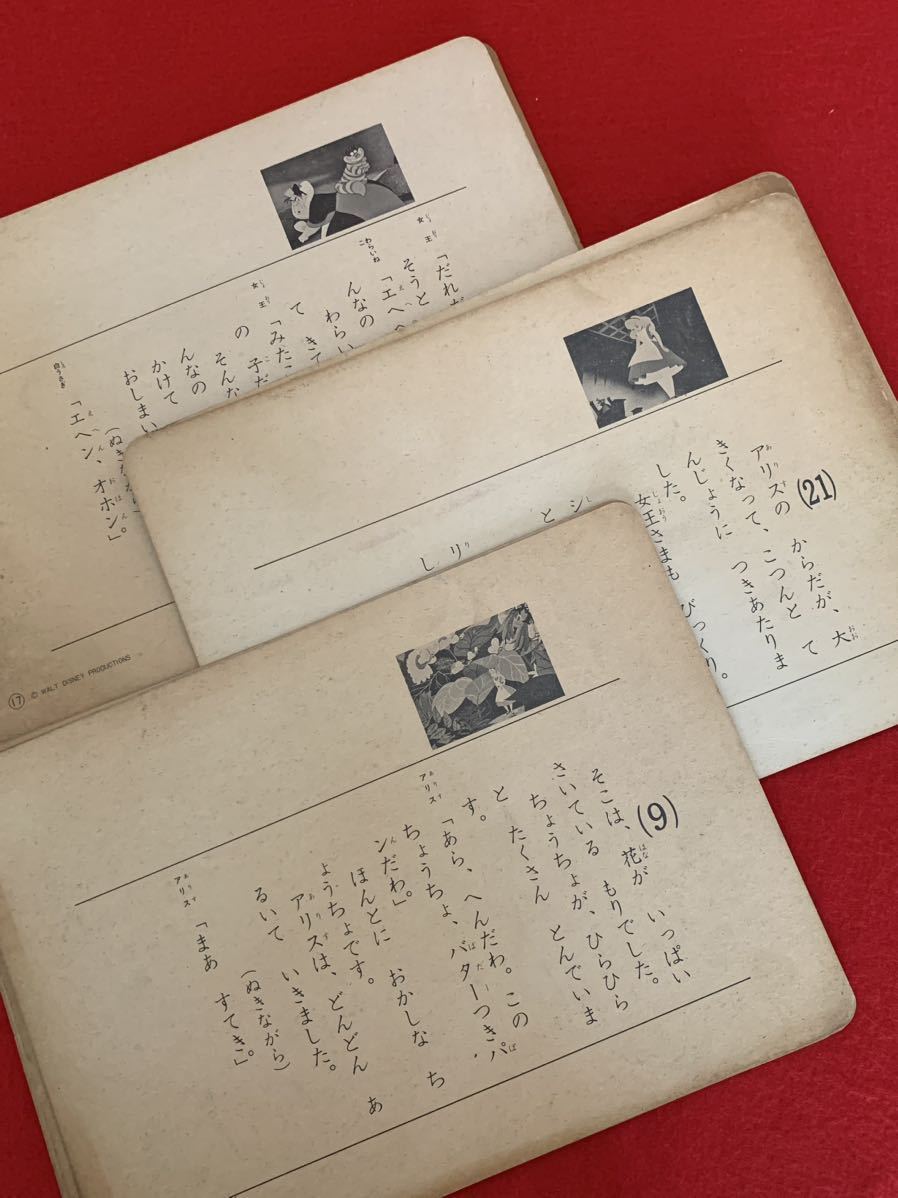 女王「だれ
そうと
わらいねこ「エヘヘ
んなの
わらい
きて
て
女王「みたこ
の 子だ
そんな
んなの
かけて
おしまい
(ぬきながら
白うさぎ「エヘン、オホン」。
⑰ © WALT DISNEY PRODUCTIONS
(21)
アリスの からだが、大
きくなって、こつんと て
んじょうに つきあたりま
した。
女王さまも びっくり。
シ
と
リ
し
(9)
そこは、花が いっぱい
さいている もりでした。
ちょうちょが、ひらひら
と たくさん とんでいま
す。
アリス「あら、へんだわ。この
ちょうちょ、バターつきパ
ンだわ。」
ほんとに おかしな ち
ょうちょです。
アリスは、どんどん あ
るいて いきました。
(ぬきながら)
アリス「まあ すてき。」